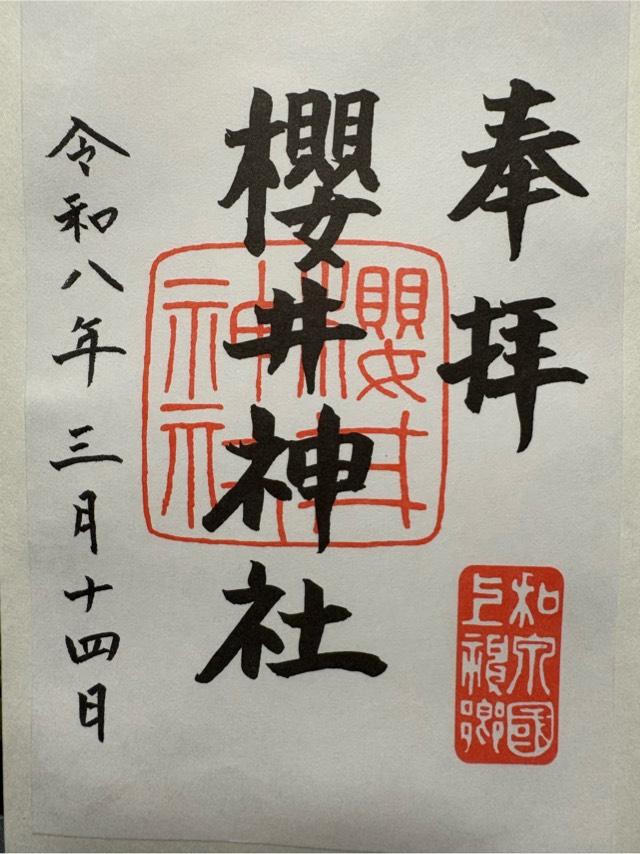 奉拝
櫻井神社
令和八年三月十四日
櫻井神社
和泉國上神郷